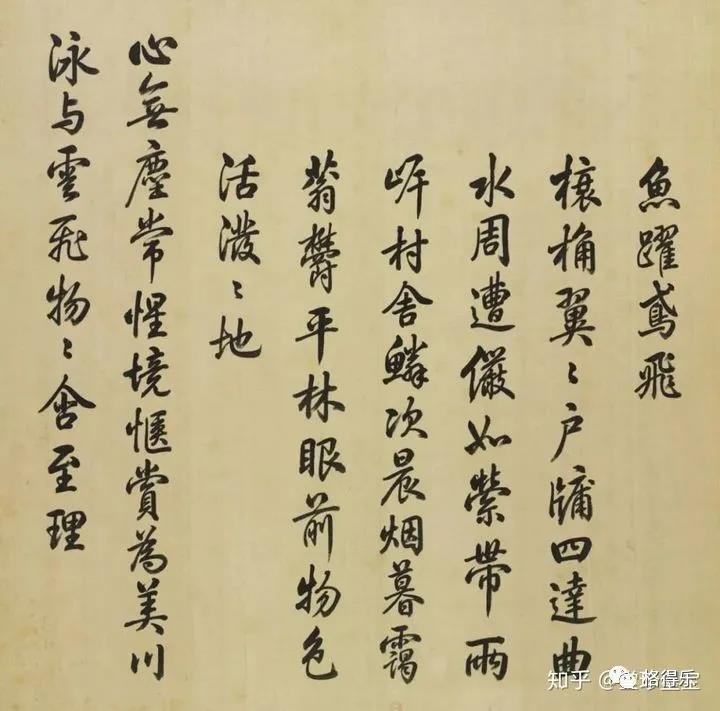 魚躍鳶飛
榱桷翼〻戶牖四達曲
水周遭儼如縈帶兩
岸村舍鱗次晨烟暮靄
蓊鬱平林眼前物色
活潑〻地
心無塵常惺境愜賞為美川
泳与雲飛物〻含至理
知乎